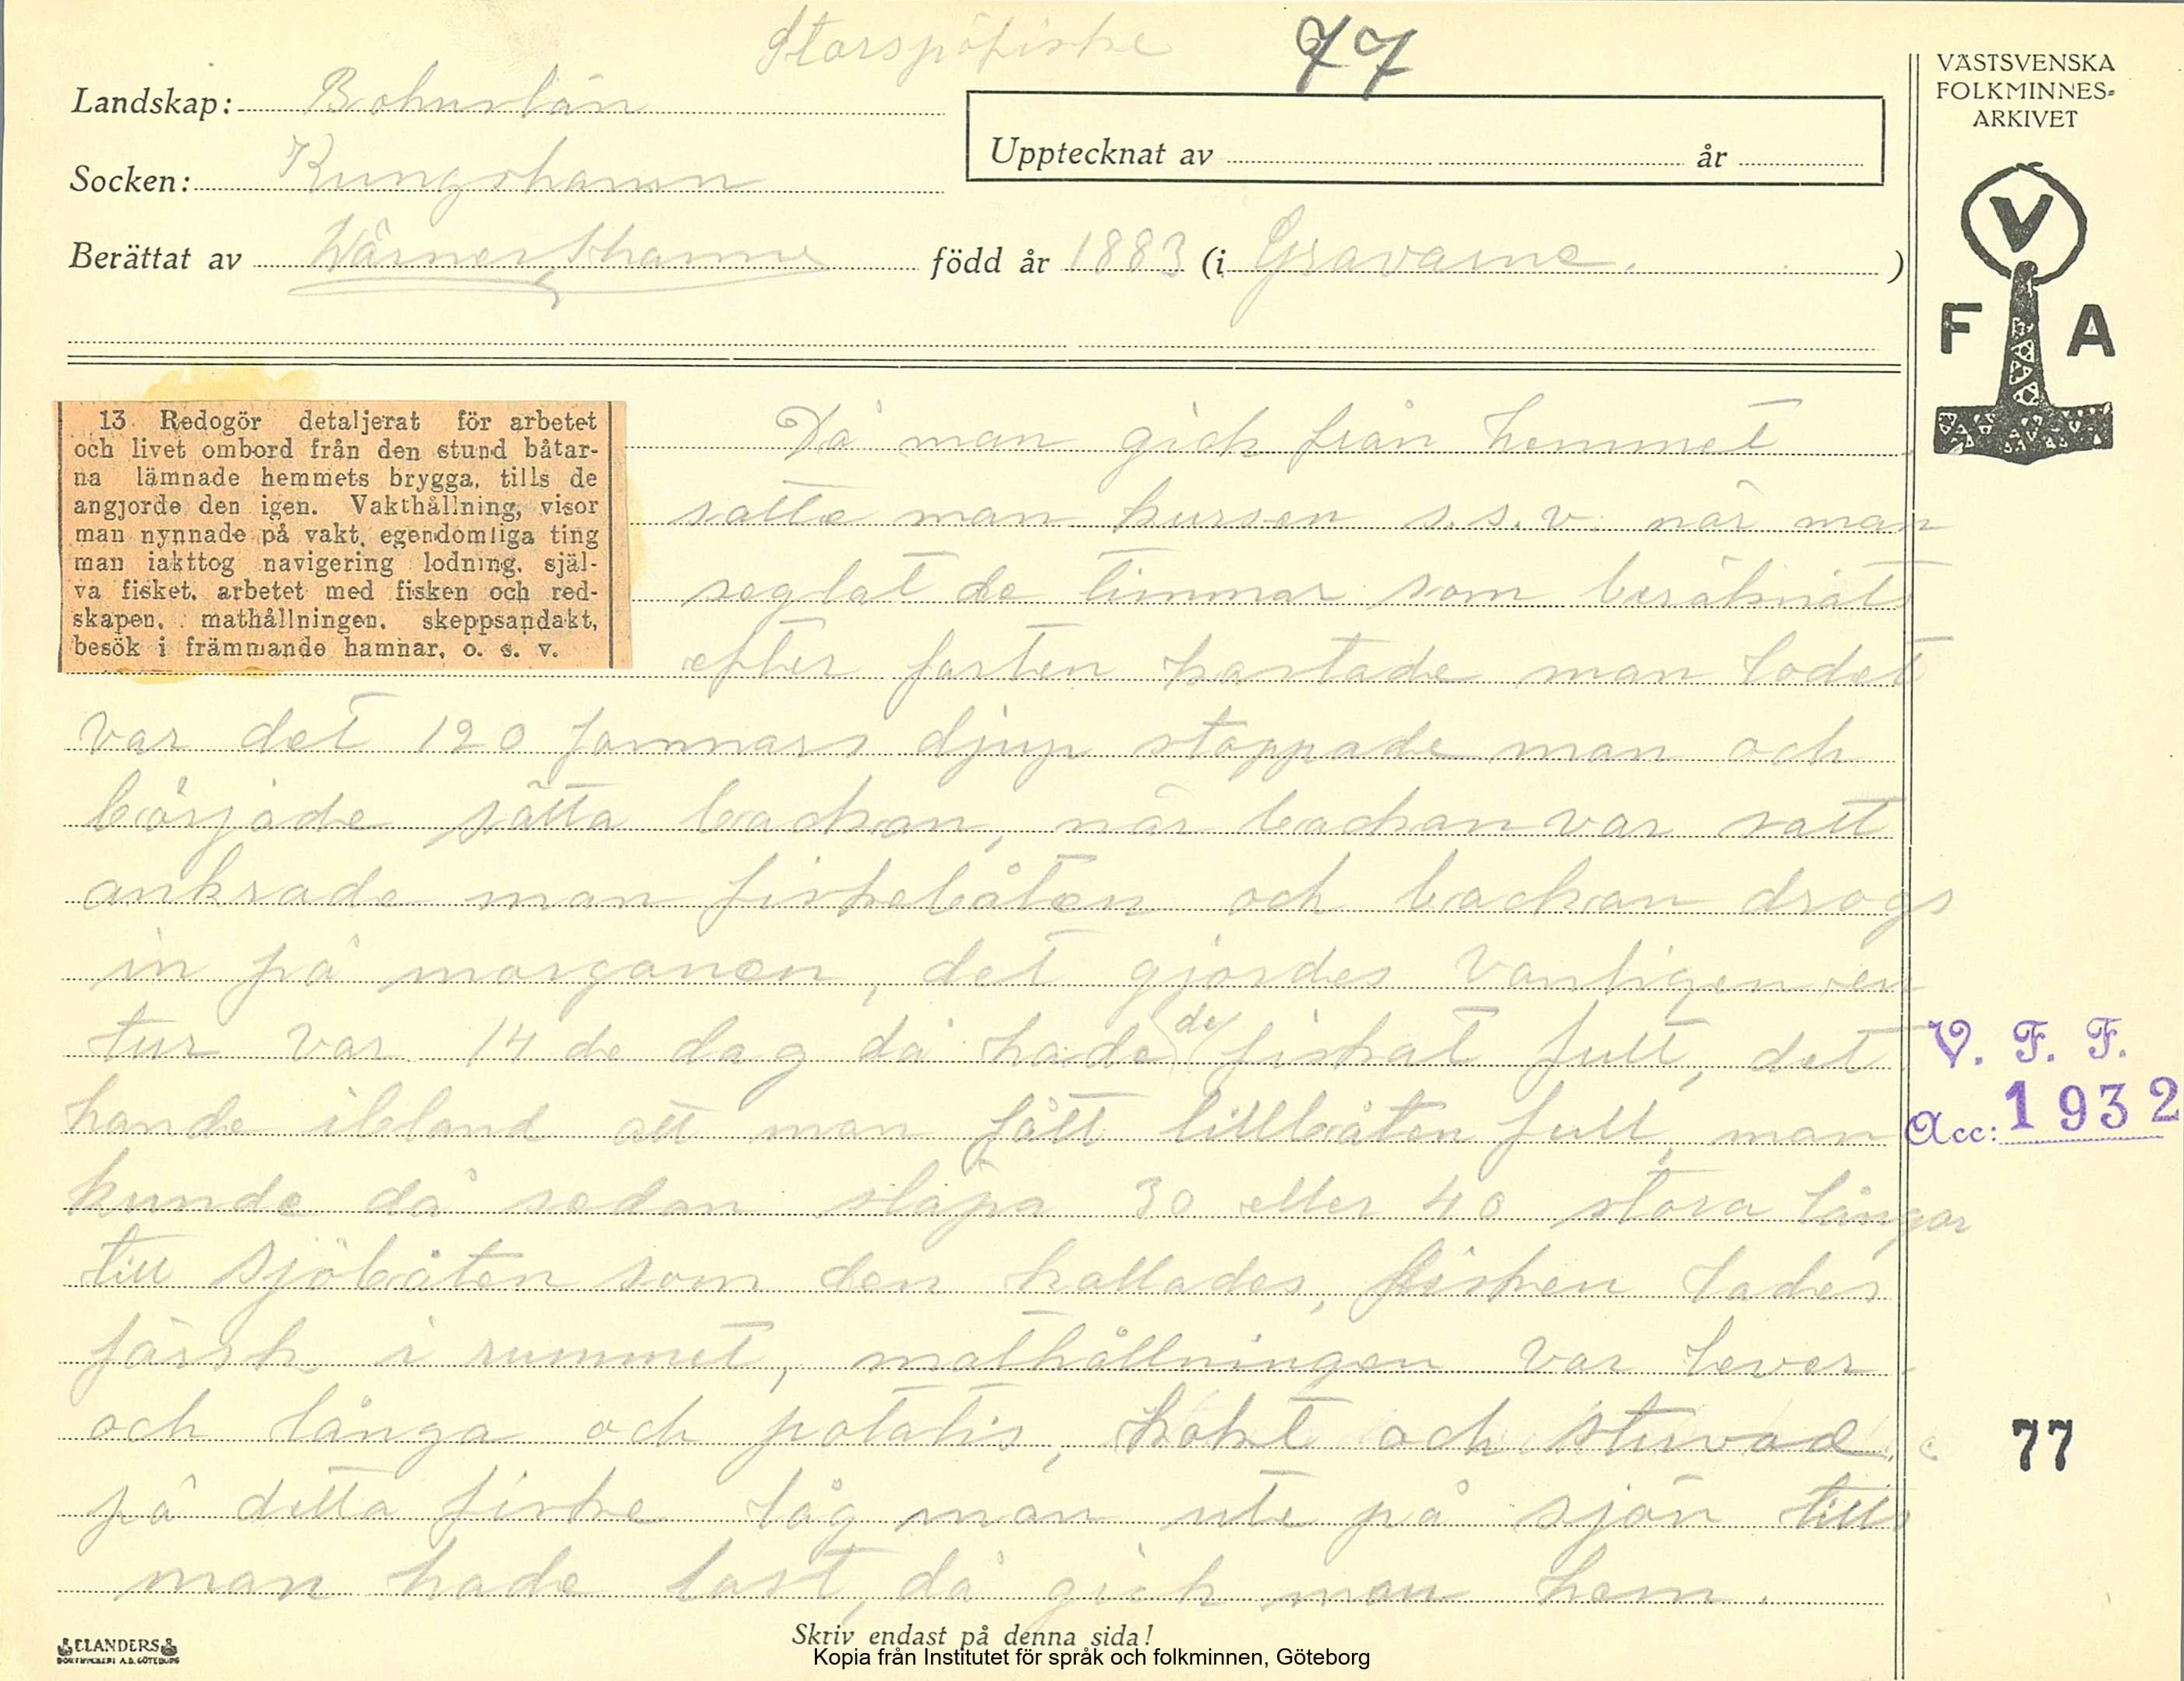 Storsjöfiske 77
Landskap: Bohuslän
Socken: Kungshamn
Upptecknat av år
Berättat av Wärner Hanne född år 1883 (i Gravarne. )
VÄSTSVENSKA
FOLKMINNES-
ARKIVET
V
F A
13 Redogör detaljerat för arbetet
och livet ombord från den stund båtar-
na lämnade hemmets brygga, tills de
angjorde den igen. Vakthållning, visor
man nynnade på vakt, egendomliga ting
man iakttog navigering lodning, själ-
va fisket, arbetet med fisken och red-
skapen, mathållningen, skeppsandakt,
besök i främmande hamnar, o. s. v.
Då man gick från hemmet
satte man kursen s.s.v. när man
seglat de timmar som beräknats
efter farten kastade man lodet
var det 120 famnars djup stoppade man och
började sätta backan, när backan var satt
ankrade man fiskebåten och backan drogs
in på morganen, det gjordes vanligen en
tur var 14 de dag då hade de fiskat fullt, det
hände ibland att man fått lillbåten full, man
kunde då sedan släpa 30 eller 40 stora långor
till sjöbåten som den kallades, fisken lades
färsk i rummet, mathållningen var lever
och långa och potatis, kokt och stuvad
på detta fiske låg man ute på sjön tills
man hade last, då gick man hem.
V. F. F.
Acc: 1932
77
Skriv endast på denna sida!
ELANDERS
BOKTRYCKERI A.B. GÖTEBORG
Kopia från Institutet för språk och folkminnen, Göteborg